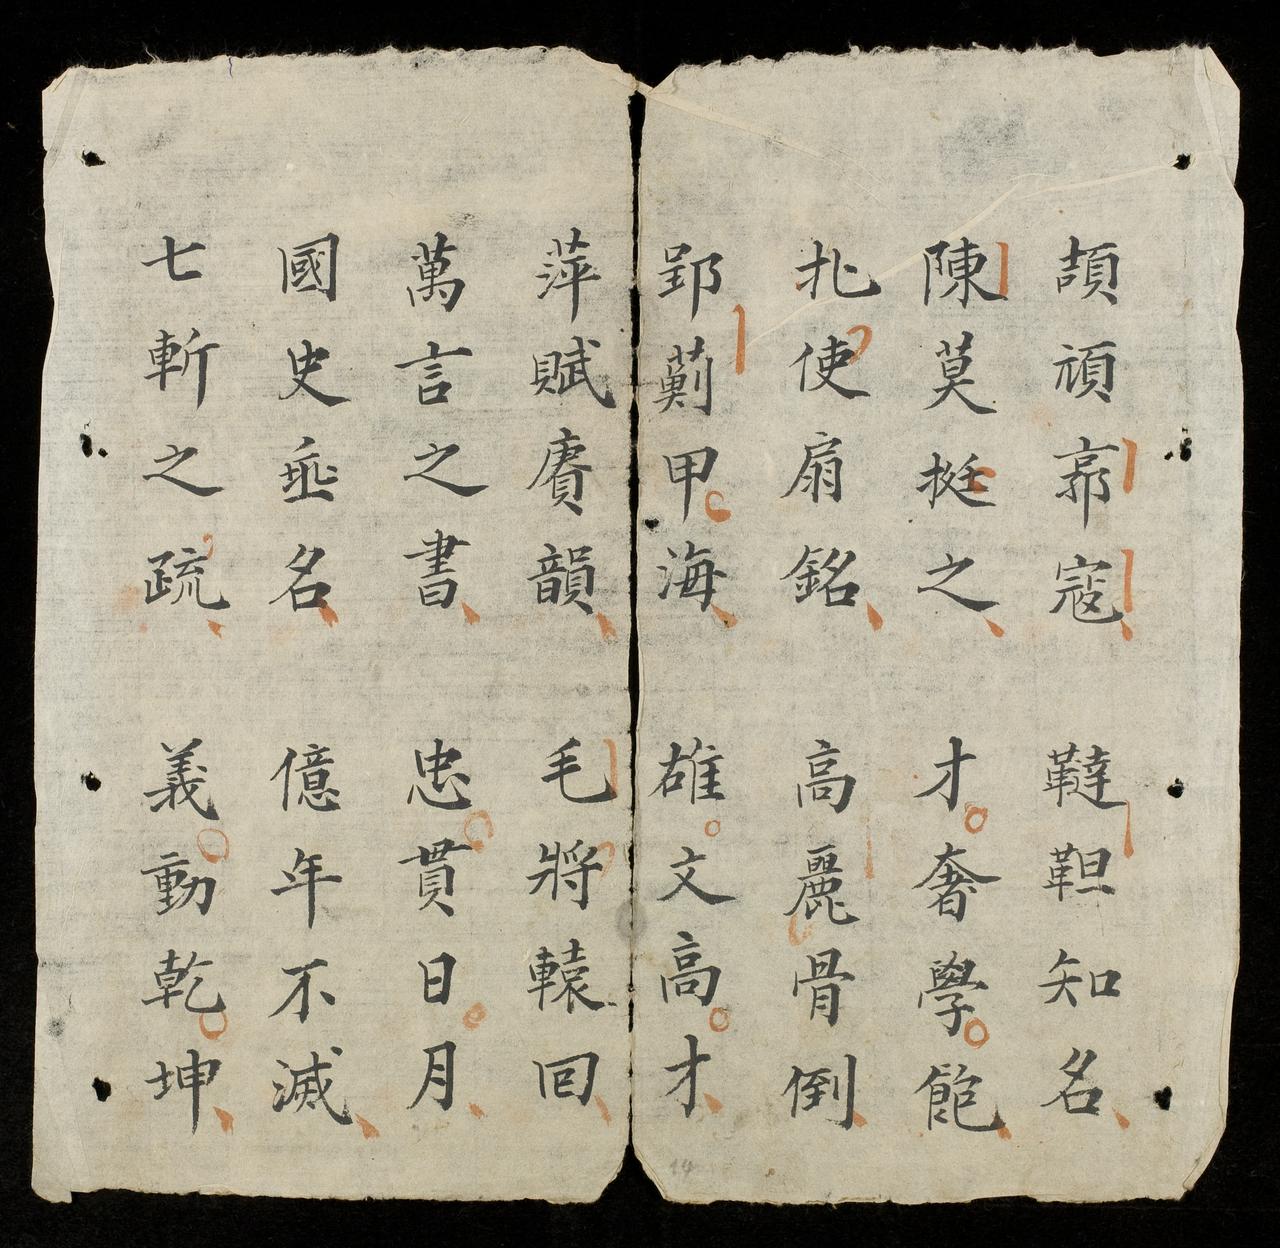 頡頑郭寇 韃靼知名
陳莫挺之 才奢學飽
北使扇銘 高麗骨倒
郢薊甲海 雄文高才
萍賦賡韻 毛將轅回
萬言之書 忠貫日月
國史垂名 億年不滅
七斬之疏 義動乾坤